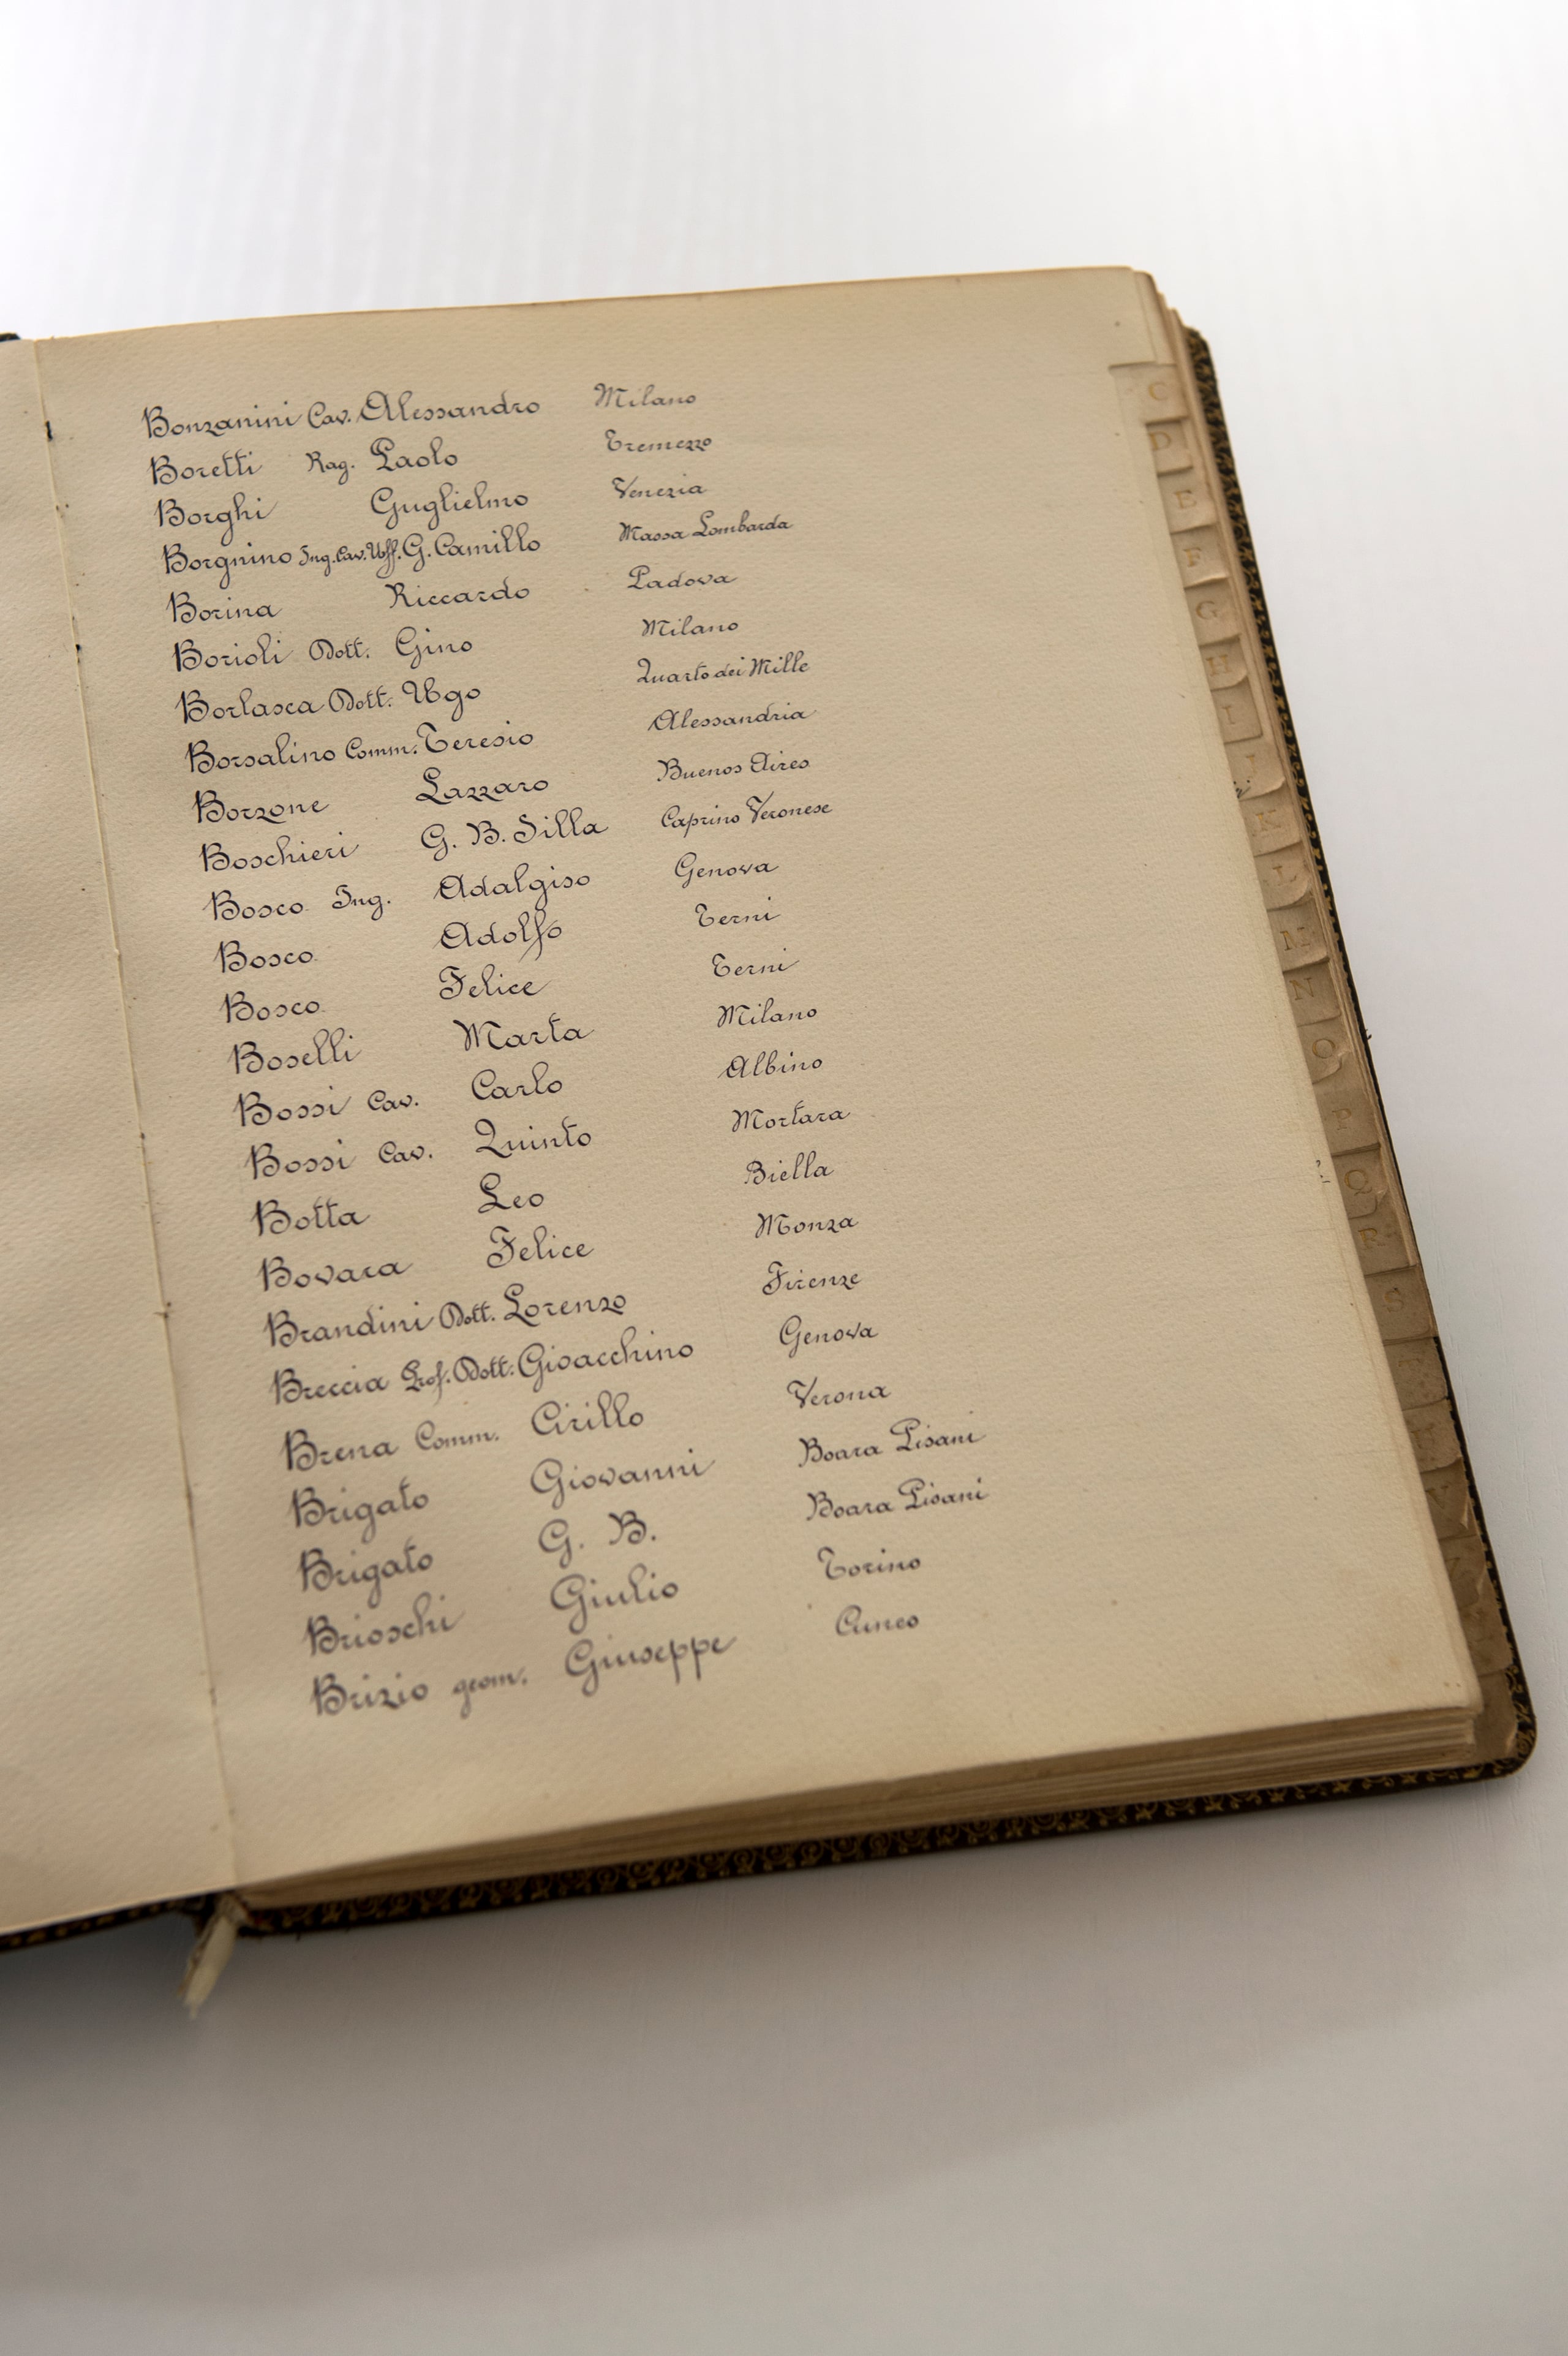 Bonzanini Cav. Alessandro Milano
Boretti Rag. Paolo Tremezzo
Borghi Guglielmo Venezia
Borgnino Ing. Cav. Uff. G. Camillo Massa Lombarda
Borina Riccardo Padova
Borioli Dott. Gino Milano
Borlasca Dott. Ugo Quarto dei Mille
Borsalino Comm. Teresio Alessandria
Borzone Lazzaro Buenos Aires
Boschieri G. B. Silla Caprino Veronese
Bosco Ing. Adalgiso Genova
Bosco Adolfo Terni
Bosco Felice Terni
Boselli Marta Milano
Bossi Cav. Carlo Albino
Bossi Cav. Quinto Mortara
Botta Leo Biella
Bovara Felice Monza
Brandini Dott. Lorenzo Firenze
Breccia Prof. Dott. Gioacchino Genova
Brena Comm. Cirillo Verona
Brigato Giovanni Boara Pisani
Brigato G. B. Boara Pisani
Brioschi Giulio Torino
Brizio geom. Giuseppe Cuneo
C
D
E
F
G
H
I
J
K
L
M
N
O
P
Q
R
S